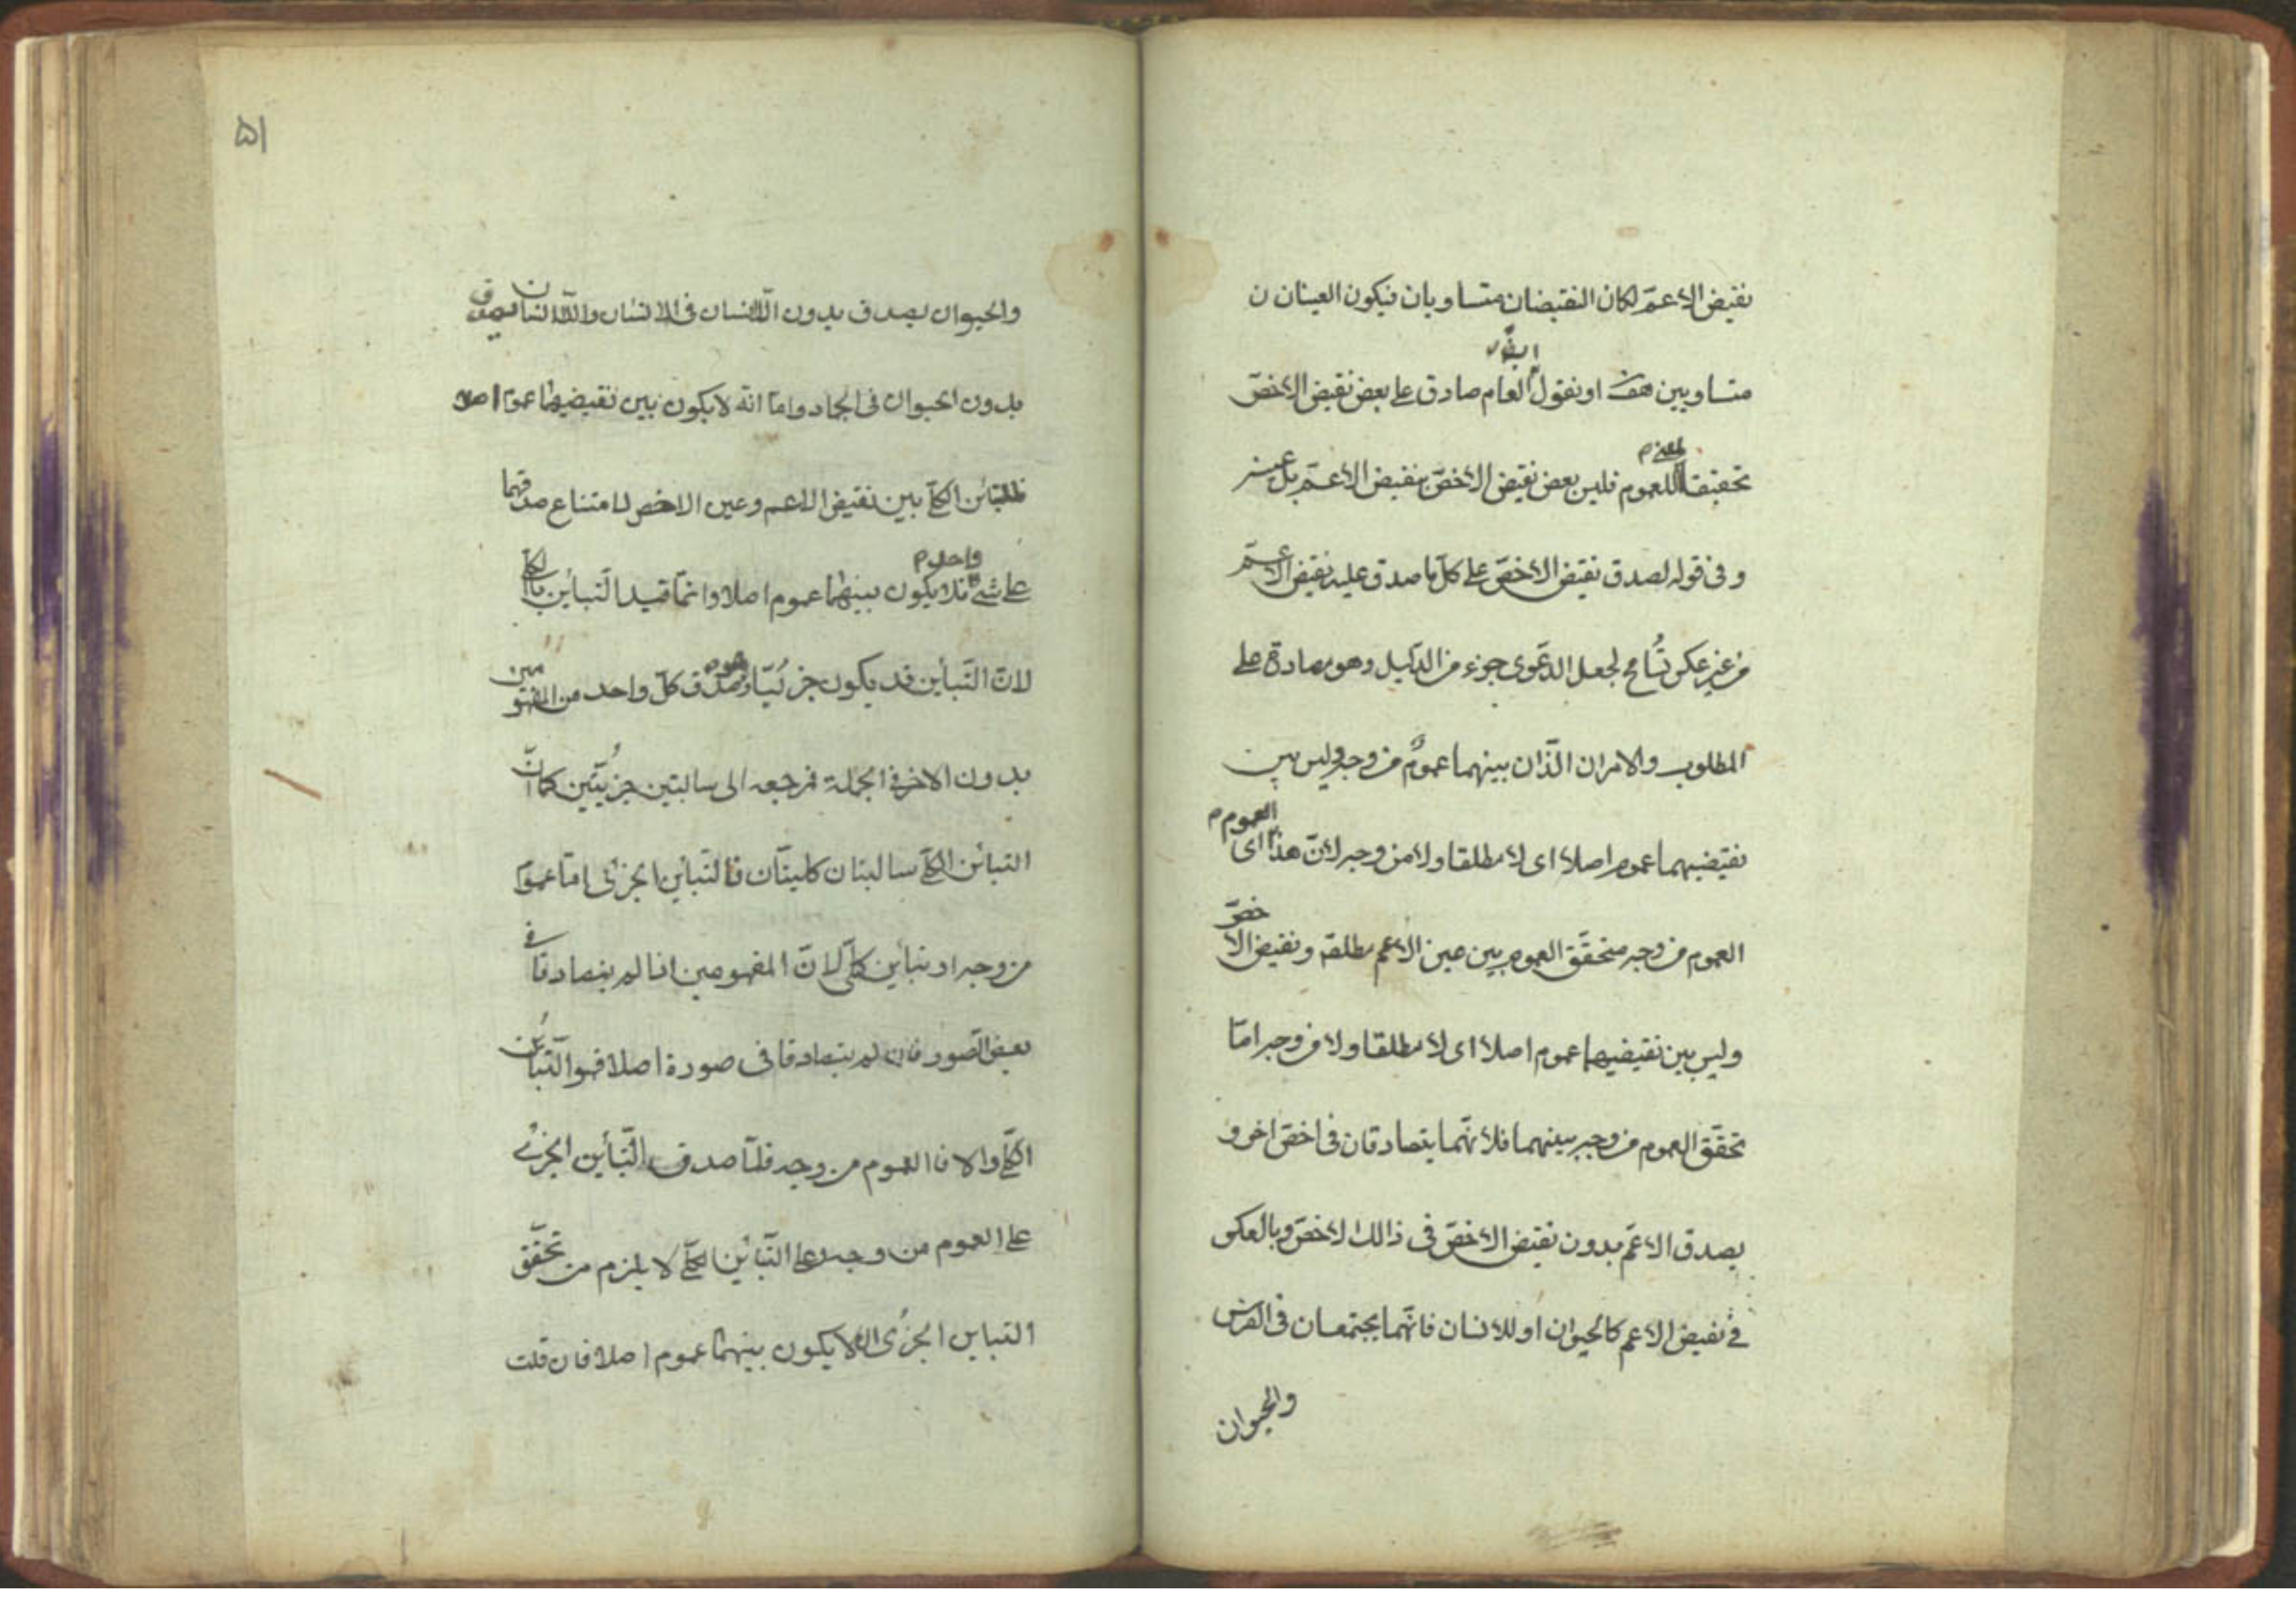 نقيض الاعمّ لكان النقيضان متساويان فيكون العينان ن
متساويين هف او نقول ايضا العام صادق على بعض نقيض الاخصّ
تحقيقا للعموم فليس بعض نقيض الاخصّ بنقيض الاعمّ بل عينه
و فى قوله لصدق نقيض الاخصّ على كلّ ما صدق عليه نقيض الاعمّ
من غير عكس تسامح لجعل الدعوى جزء من الدليل وهو مصادرة على
المطلوب والامران الّذان بينهما عمومٌ من وجه وليس بين
نقيضيهما عموم اصلا اى لا مطلقا ولا من وجه لانّ هذا العموم اى
العموم من وجه متحقّق العموم بين عين الاعم مطلقة ونقيض الاخصّ
وليس بين نقيضيهما عموم اصلا اى لا مطلقا ولا من وجه امّا
تحقّق العموم من وجه بينهما فلانّهما يتصادقان فى اخصّ اخر و
يصدق الاعمّ بدون نقيض الاخصّ فى ذالك الاخصّ وبالعكس
فى نقيض الاعم كالحيوان او للانسان فانّهما يجتمعان فى الفرس
والحيوان
۵۱
والحيوان يصدق بدون اللّاانسان فى الانسان واللّاانسان يصدق
بدون الحيوان فى الجماد وامّا انّه لا يكون بين نقيضيهما عموم اصلا
فللتبائن الكلّى بين نقيض الاعم وعين الاخص لامتناع صدقهما
على شىء واحد فلا يكون بينهما عموم اصلا وانّما قيد التّبائن بالكلّى
لانّ التّبأين قد يكون جزئيّا وهو صدق كلّ واحد من المفهومين
بدون الاخر فى الجملة فمرجعه الى سالبتين جزئيّتين كما انّ
التبائن الكلّى سالبتان كليتان فالتّبأين الجزئى امّا عموم
من وجه او تباين كلّى لانّ المفهومين اذا لم يتصادقا فى
بعض الصّور فان لم يتصادقا فى صورة اصلا فهو التّبائن
الكلّى والا فالعموم من وجه فلمّا صدق التّبأين الجزئى
على العموم من وجه وعلى التّبأين الكلّى لا يلزم من تحقّق
التباين الجزئى ان لا يكون بينهما عموم اصلا فان قلت